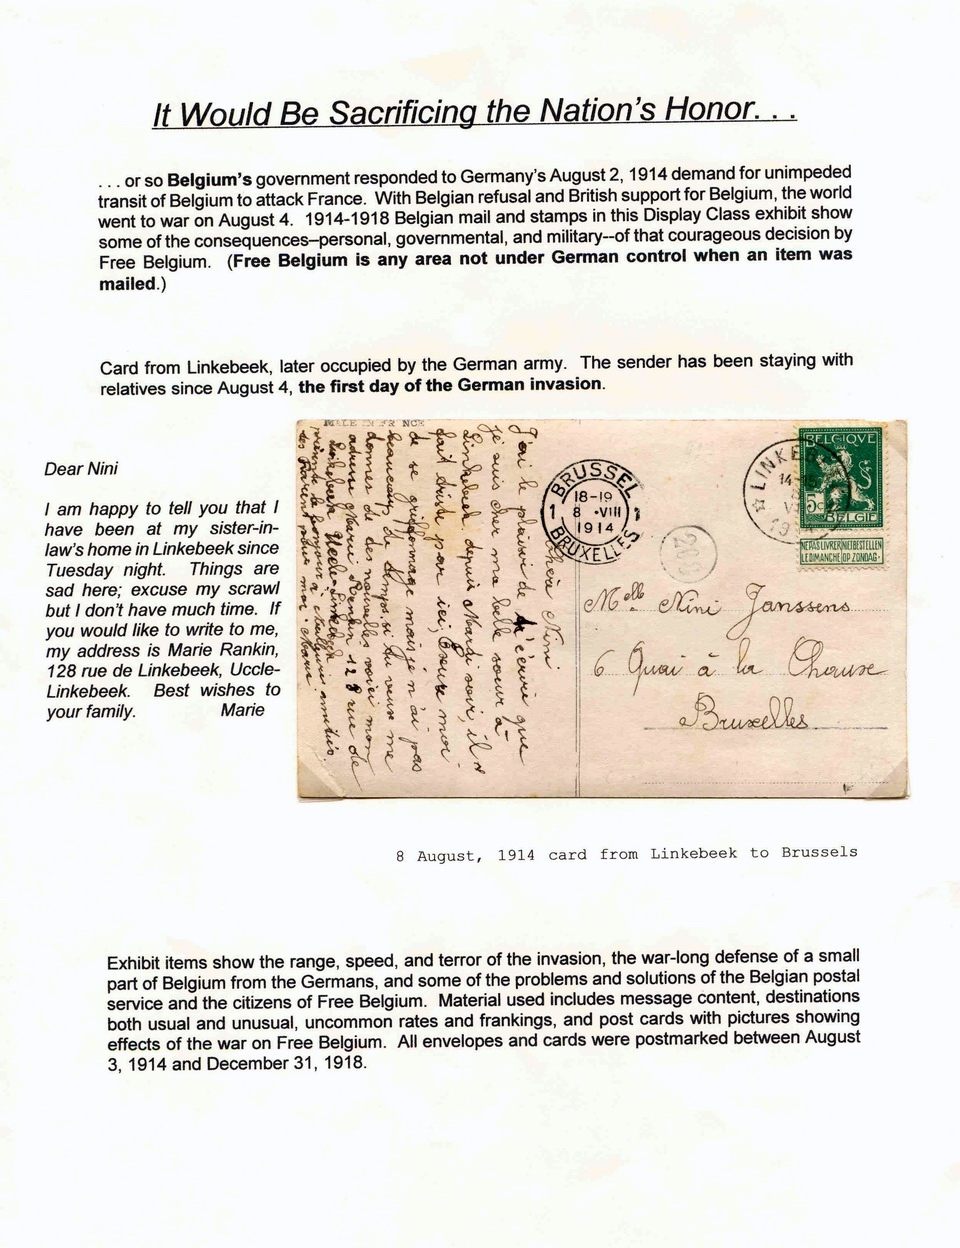 It Would Be Sacrificing the Nation's Honor. . .
. . . or so Belgium's government responded to Germany's August 2, 1914 demand for unimpeded
transit of Belgium to attack France. With Belgian refusal and British support for Belgium, the world
went to war on August 4. 1914-1918 Belgian mail and stamps in this Display Class exhibit show
some of the consequences--personal, governmental, and military--of that courageous decision by
Free Belgium. (Free Belgium is any area not under German control when an item was
mailed.)
Card from Linkebeek, later occupied by the German army. The sender has been staying with
relatives since August 4, the first day of the German invasion.
Dear Nini
I am happy to tell you that I
have been at my sister-in-
law's home in Linkebeek since
Tuesday night. Things are
sad here; excuse my scrawl
but I don't have much time. If
you would like to write to me,
my address is Marie Rankin,
128 rue de Linkebeek, Uccle-
Linkebeek. Best wishes to
your family. Marie
MADE IN FRANCE
Chère Nini
J'ai le plaisir de t'écrire que
je suis chez ma belle soeur à
Linkebeek depuis Mardi soir, il
fait triste par ici, Excuse moi
de ce griffonnage mais je n'ai pas
beaucoup de temps, si tu veux me
donner de des nouvelles voici mon
adresse Marie Rankin 128 rue de
Linkebeek Uccle-Linkebeek
tes parents pour moi. Marie.
BRUSSEL
18-19
1 8 -VIII 1
1914
BRUXELLES
LINKEB
14-15
8
19
BELGIQUE
5c
BELGIË
NE PAS LIVRER LE DIMANCHE
NIET BESTELLEN OP ZONDAG
Melle Nini Janssens
6 Quai à la Chaux
Bruxelles
8 August, 1914 card from Linkebeek to Brussels
Exhibit items show the range, speed, and terror of the invasion, the war-long defense of a small
part of Belgium from the Germans, and some of the problems and solutions of the Belgian postal
service and the citizens of Free Belgium. Material used includes message content, destinations
both usual and unusual, uncommon rates and frankings, and post cards with pictures showing
effects of the war on Free Belgium. All envelopes and cards were postmarked between August
3, 1914 and December 31, 1918.